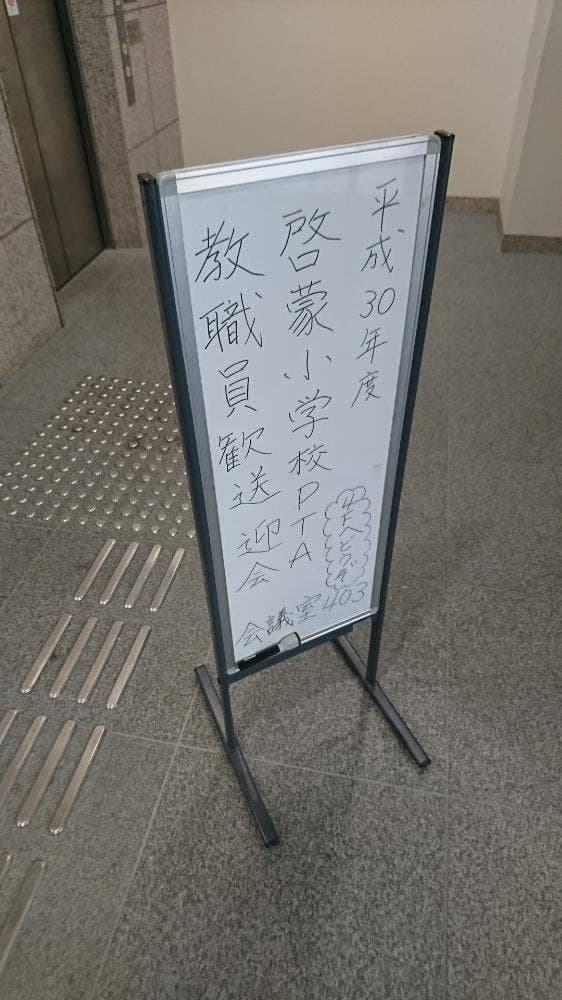 平成30年度
啓蒙小学校PTA
教職員歓送迎会
4Fへどうぞ
会議室403